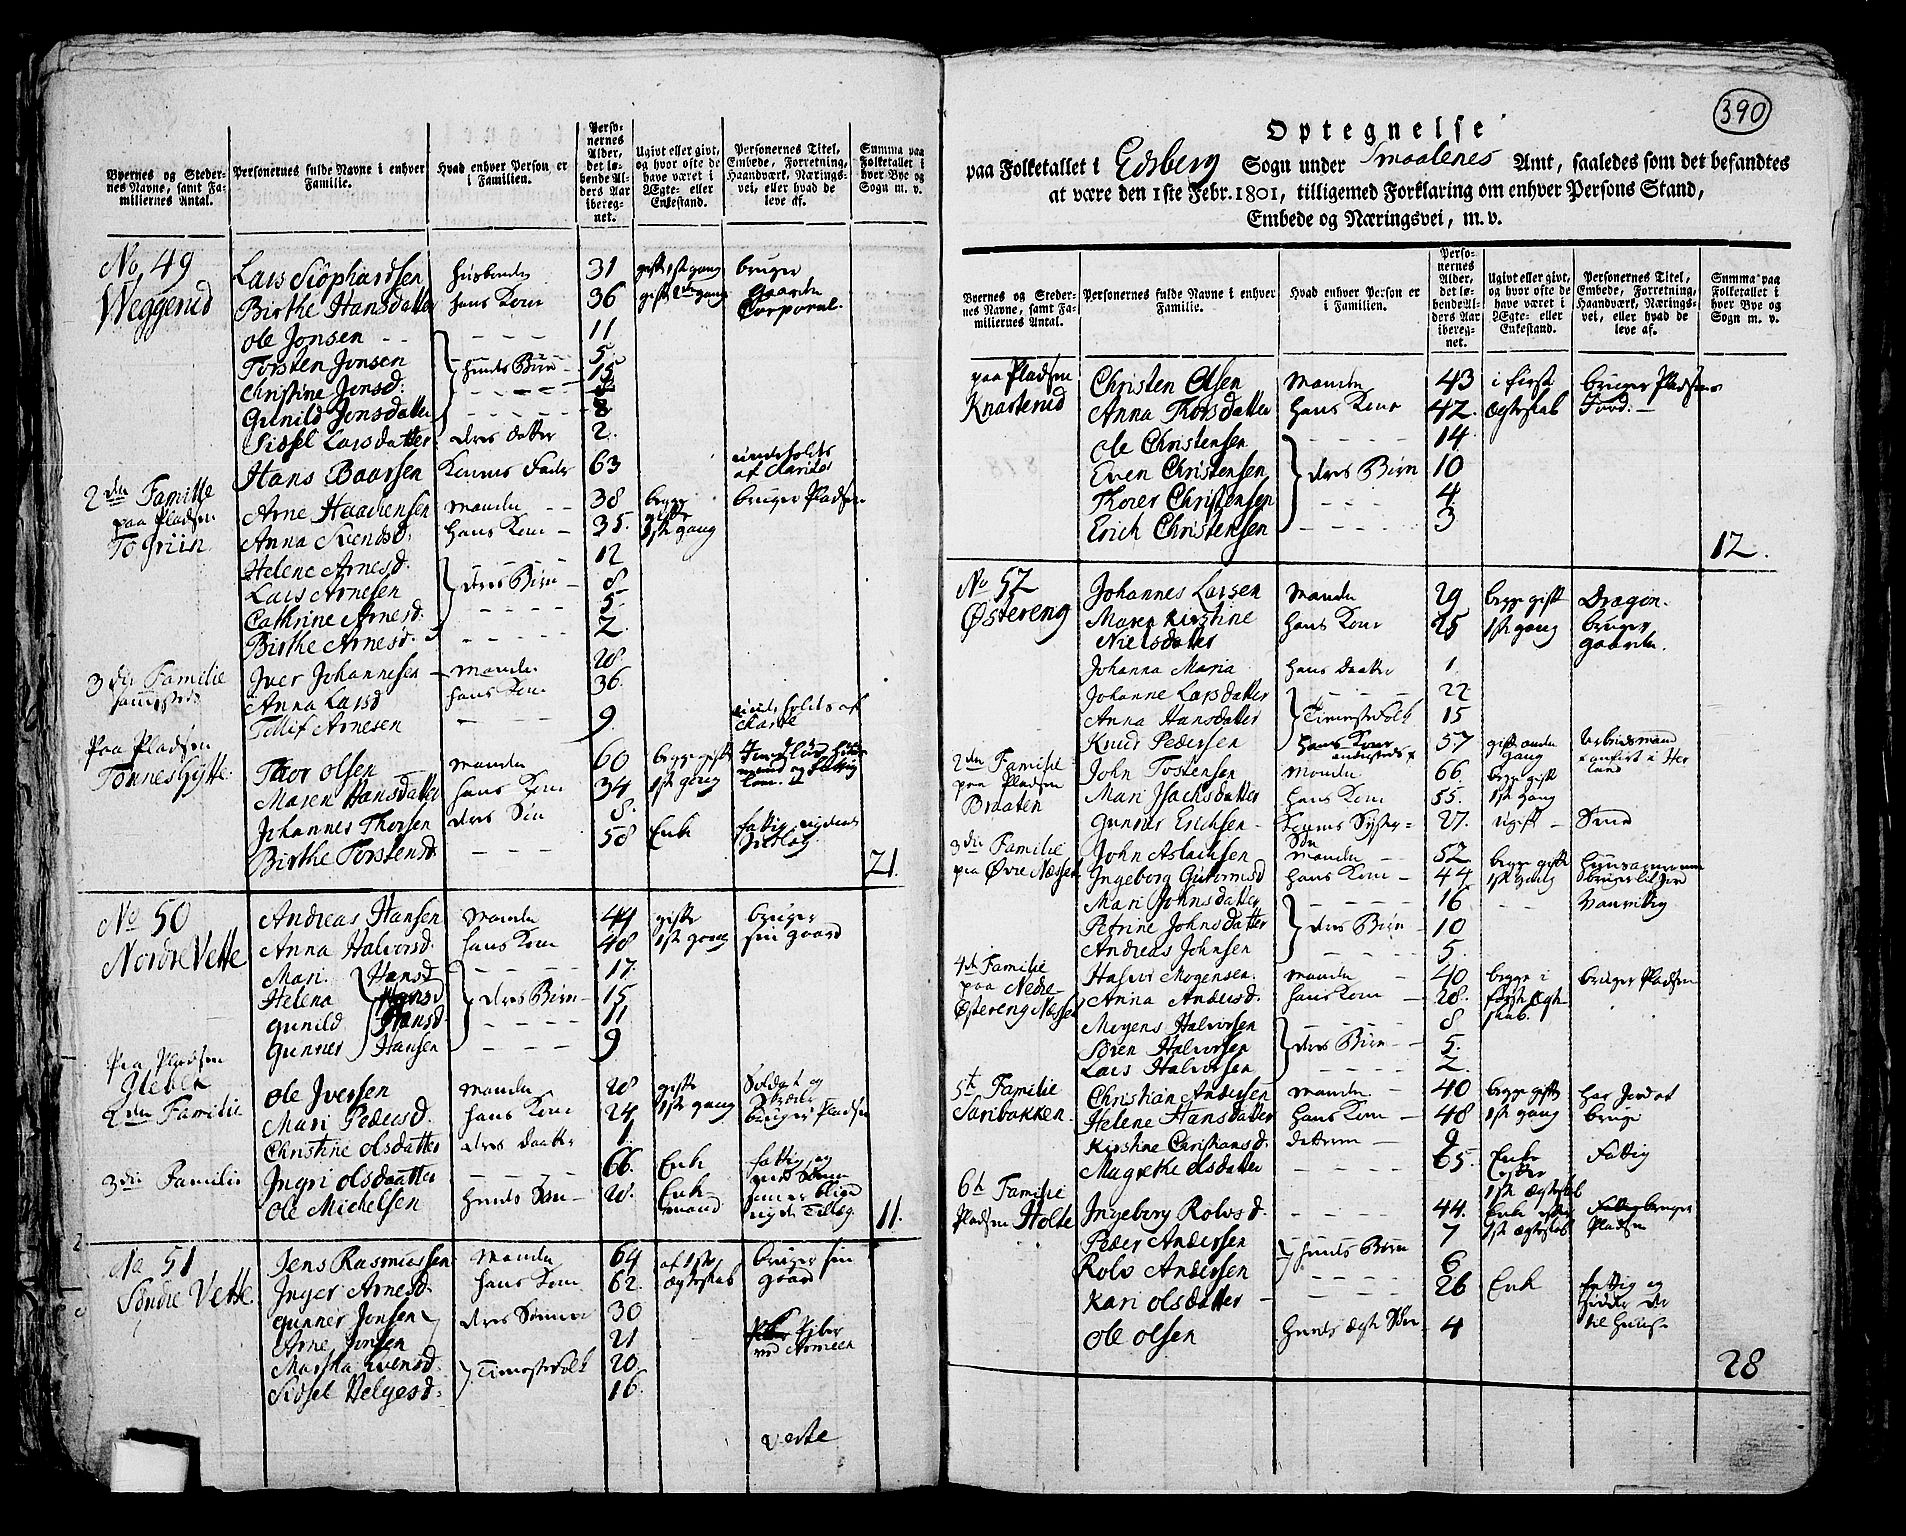 Byernes og Steder-
nes Navne, samt Fa-
miliernes Antal.
Personernes fulde Navne i enhver
Familie.
Hvad enhver Person er
i Familien.
Perso-
nernes
Alder,
det lø-
bende Al-
ders Aar
ibereg-
net.
Ugivt eller givt,
og hvor ofte de
have været i
Ægte- eller
Enkestand.
Personernes Titel,
Embede, Forretning,
Haandværk, Nærings-
vei, eller hvad de
leve af.
Summa paa
Folketallet i
hver Bye og
Sogn m. v.
No 49 Lars Siøphardsen Huusbonde 31 gift 1st gang bruger
Weggerud Birthe Hansdatter hans Kone 36 gift 2den gang gaarden Corporal
Ole Jonsen 11
Torsten Jonsen 5
Christine Jonsd. hendes Børn 15
Gunild Jonsdatter 8
Sidsel Larsdatter deres datter 2
Hans Baarsen Konens Fader 63 underholdes af
2den Familie
paa Pladsen Arne Haachensen Manden 38 begge bruger Pladsen
Togriin Anna Svendsd. hans Kone 35 gifte 1st gang
Helene Arnesd. 12
Lars Arnesen deres Børn 8
Cathrine Arnesd. 5
Birthe Arnesd. 2
3die Familie Iver Johannesen Manden 28
sammesteds Anna Larsd hans Kone 36
Arnesen 9 underholdes af
Paa Pladsen Thor Olsen Manden 60 begge gifte
TonnesHytte Maren Hansdatter hans Kone 34 1st gang
Johannes Thorsen deres Søn 8
Birthe Torstensd. 58 Enke
21.
No 50 Andreas Hansen Manden 44 gifte bruger
Nordre Vette Anna Halvorsd. hans Kone 48 1st gang sin gaard
Mari Hansd 17
Helena Hansd deres Børn 15
Gunild Hansd 11
Gunner Hansen 9
Paa Pladsen
Ole Iversen Manden 28 gifte Soldat og
2den Familie Mari Pedersd. hans Kone 24 1st gang bruger Pladsen
Christine Olsdatter deres Daatter 1
3die Familie Ingri Olsdaatter 66 Enke fattig og
Ole Michelsen hendes Søn 28 Enkemand
11.
No 51 Jens Rasmussen Manden 64 af 1ste bruger sin
Søndre Vette Inger Arnesd. hans Kone 62 ægteskab gaard
Gunner Jonsen deres Sønner 30
Arne Jonsen 21 ved Armeen
Martha Evensd. Tienestefolk 20
Sidsel Helgesd. 16
verte
390
Optegnelse
paa Folketallet i Edsberg Sogn under Smaalenes Amt, saaledes som det befandtes
at være den 1ste Febr. 1801, tilligemed Forklaring om enhver Persons Stand,
Embede og Næringsvei, m. v.
Byernes og Steder-
nes Navne, samt Fa-
miliernes Antal.
Personernes fulde Navne i enhver
Familie.
Hvad enhver Person er
i Familien.
Perso-
nernes
Alder,
det lø-
bende Al-
ders Aar
ibereg-
net.
Ugivt eller givt,
og hvor ofte de
have været i
Ægte- eller
Enkestand.
Personernes Titel,
Embede, Forretning,
Haandværk, Nærings-
vei, eller hvad de
leve af.
Summa paa
Folketallet i
hver Bye og
Sogn m. v.
paa Pladsen Christen Olsen Manden 43 i first bruger Pladsens
Knarterud Anna Thorsdatter hans Kone 42 ægteskab Jord.
Ole Christensen 14
Even Christensen deres Børn 10
Thorer Christensen 4
Erich Christensen 3
12.
No 52 Johannes Larsen Manden 29 begge gift Dragon
Østereng Maren Kirstine Nielsdatter hans Kone 25 1st gang bruger gaarden.
Johanna Maria hans Daatter 1
Johanne Larsdatter 22
Anna Hansdatter Tienestefolk 15
Knud Pedersen hans Kone andensteds 57 gift anden gang Arbeidsmand
2den Familie John Tostensen Manden 66 begge gift
paa Pladsen Mari Isachsdatter hans Kone 55 1st gang
Braaten Gunner Erichsen Konens Søster Søn 27 ugift Smed
3die Familie John Aslachsen Manden 52 begge gifte Huusmand
paa Øvre Næssed Ingeborg Guttormsd hans Kone 44 1st gang
Mari Johnsdatter 16 Vanvittig
Petrine Johnsdatter deres Børn 10
Andreas Johnsen 5
4de Familie Halvor Mogensen Manden 40 begge i bruger Pladsen
paa Nedre Anna Andersd. hans Kone 28 først ægteskab.
Østereng Næssed Mogens Halvorsen 8
Søren Halvorsen deres Børn 5
Lars Halvorsen 2
5te Familie Christian Andersen Manden 40 begge gifte har Jord at
Saribakken Helene Hansdatter hans Kone 48 1st gang bruge
Kirstine Christiansd. datteren 9
Magrethe Olsdatter 65 Enke efter 1st ægteskab Fattig
6te Familie
Pladsen Holte Ingeborg Rolvsd. 44 Enke efter 1st ægteskab bruger Pladsen
Peder Andersen 7
Rolv Andersen hendes Børn 6
Kari Olsdatter 26 Enke fattig og
Ole Olsen hendes ægte Søn 4
28